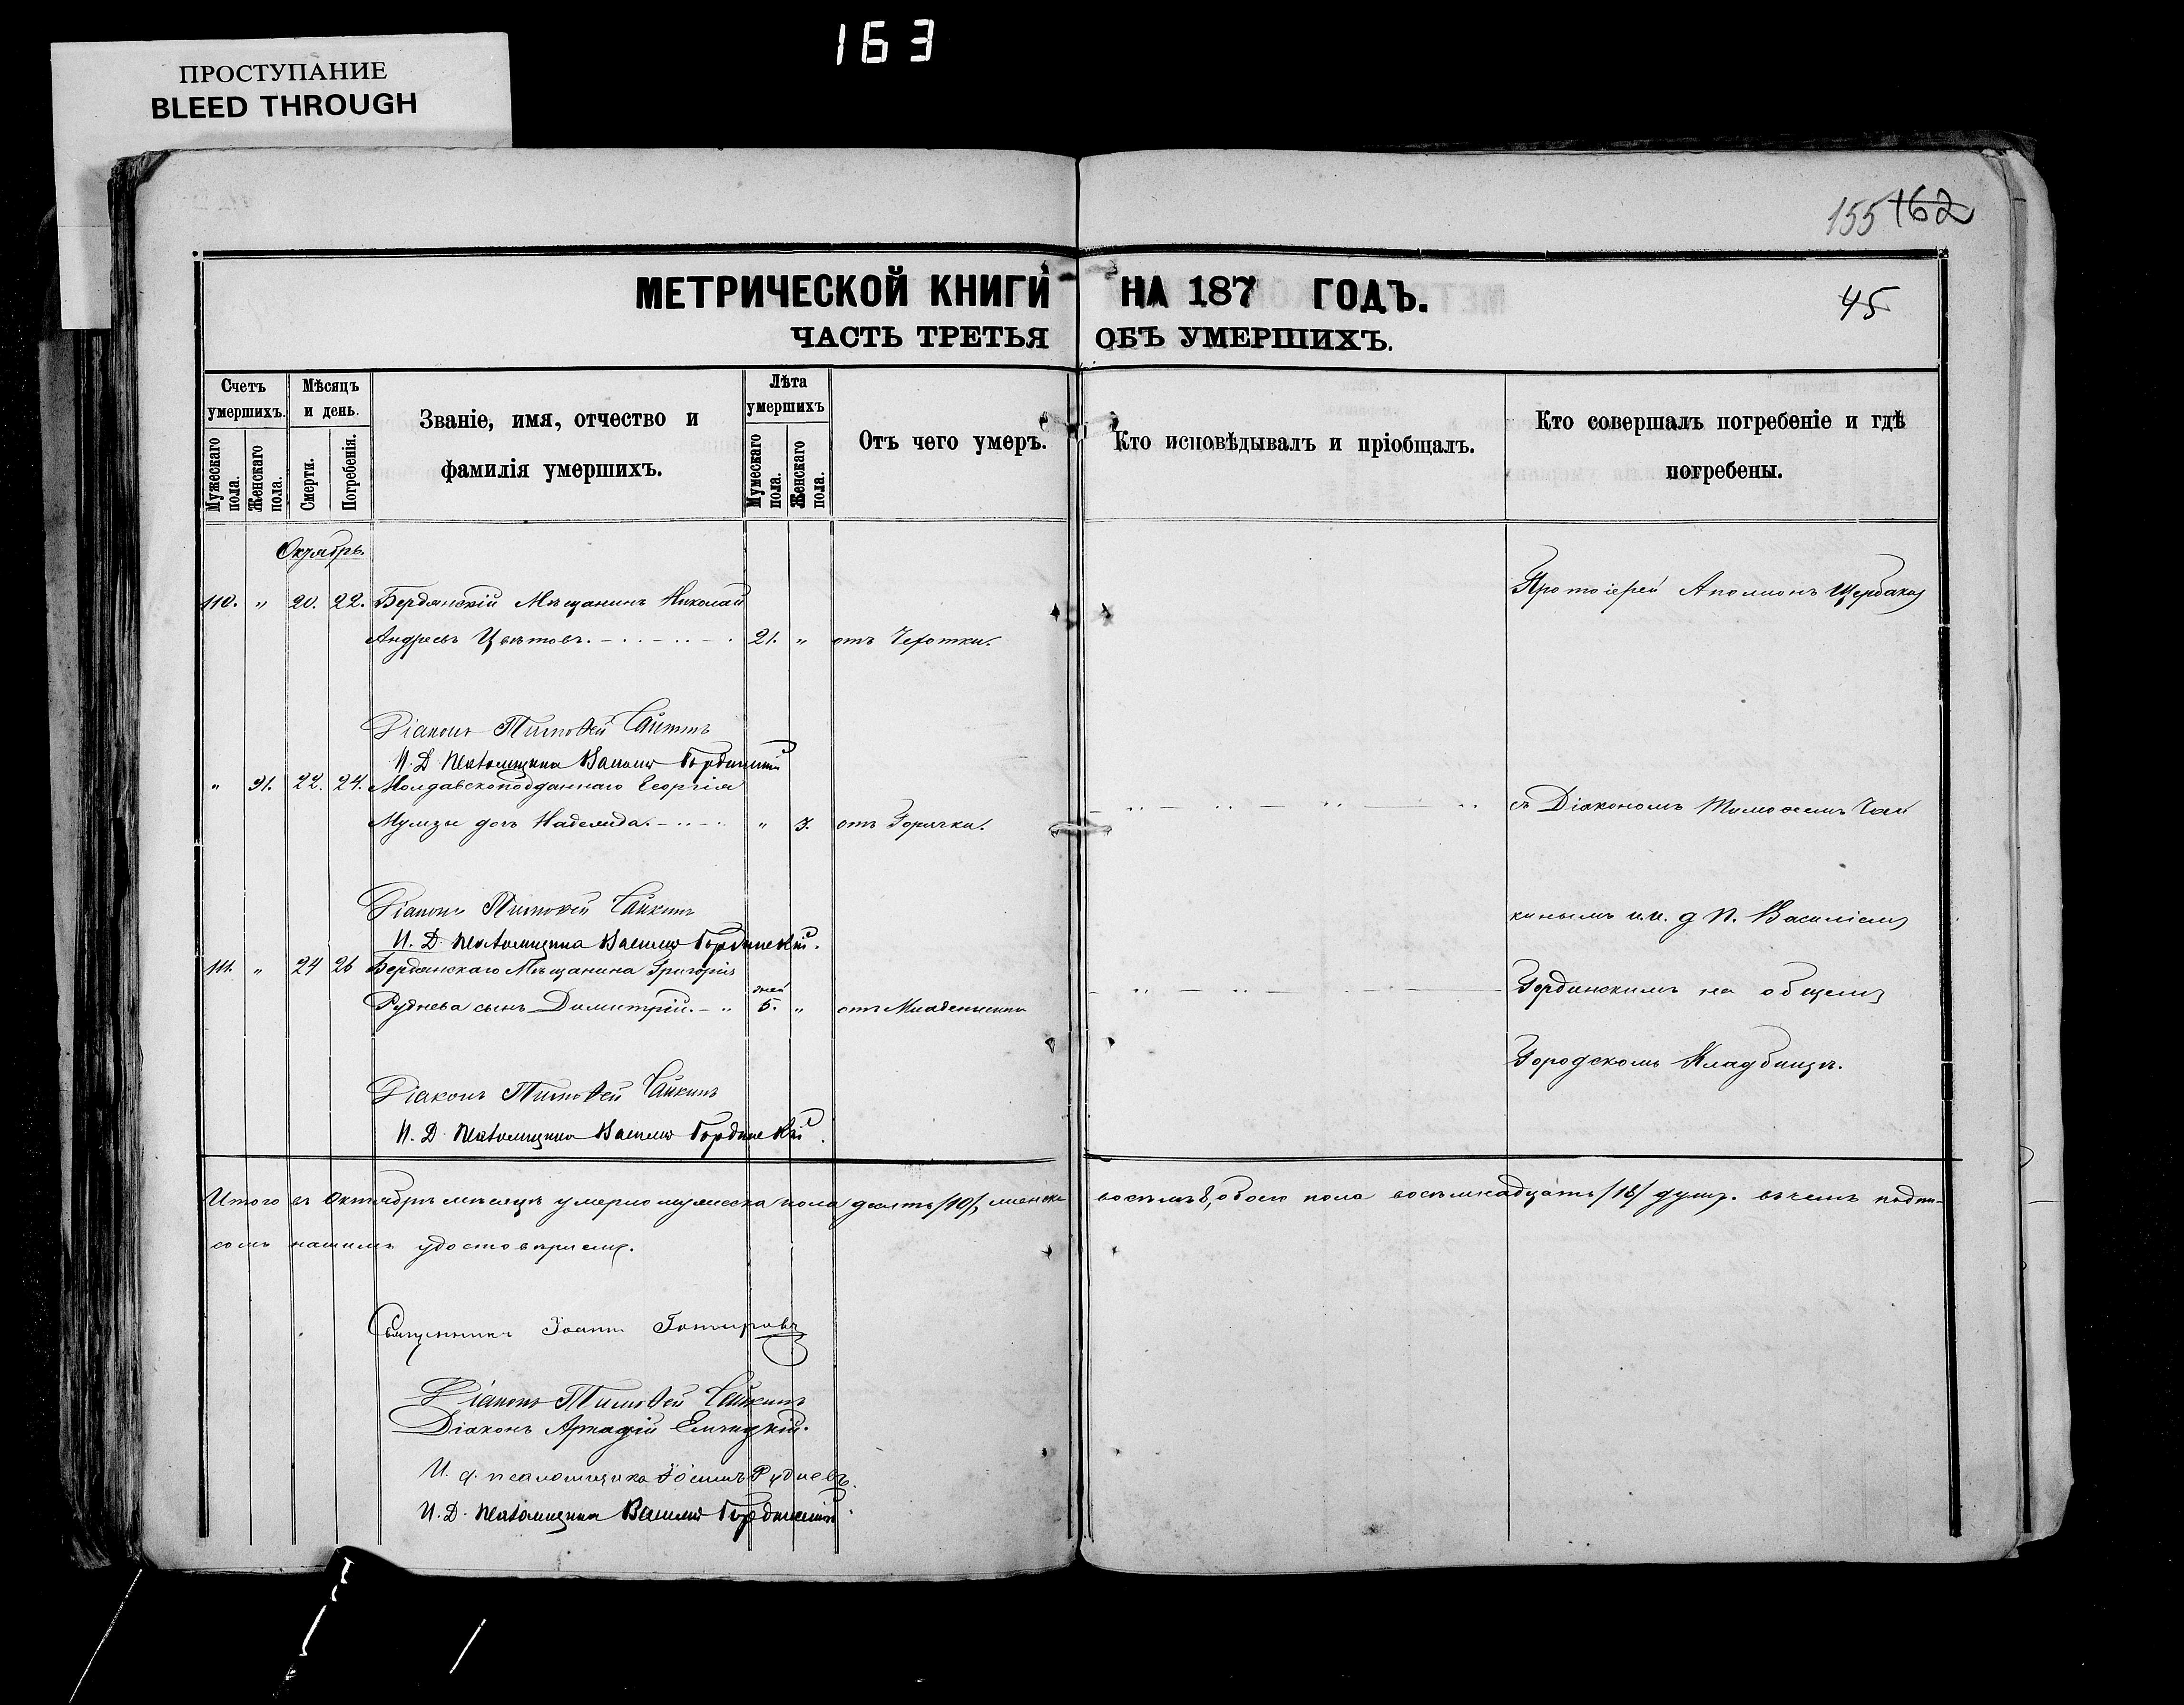 163
ПРОСТУПАНИЕ
BLEED THROUGH
155 162
МЕТРИЧЕСКОЙ КНИГИ НА 187 ГОДЪ.
45
ЧАСТЬ ТРЕТЬЯ ОБЪ УМЕРШИХЪ.
Счетъ умершихъ.
Мужескаго пола.
Женскаго пола.
Мѣсяцъ и день.
Смерти.
Погребенія.
Званіе, имя, отчество и
фамилія умершихъ.
Лѣта умершихъ
Мужескаго пола.
Женскаго пола.
Отъ чего умеръ.
Кто исповѣдывалъ и пріобщалъ.
Кто совершалъ погребеніе и гдѣ
погребены.
Октябрь.
110. " 20. 22. Бердянскій Мѣщанинъ Николай
Протоіерей Аполлонъ Щербаков
Андреевъ Цвѣтовъ. 21. " отъ Чахотки.
Діаконъ Тимоѳей Чайкинъ
И. Д. Псаломщика Василій Гординскій
" 31. 22. 24. Молдавскоподданнаго Георгія
съ Діакономъ Тимоѳеемъ Чай
дочь Надежда. " 3. отъ Горячки.
Діаконъ Тимоѳей Чайкинъ
кинымъ и и. д. П. Василіемъ
И. Д. Псаломщика Василій Гординскій.
111. " 24 26 Бердянскаго Мѣщанина Григорія
Гординскимъ на общемъ
Руднева сынъ Димитрій. дней 5. " отъ Младенческ
Городскомъ Кладбищѣ.
Діаконъ Тимоѳей Чайкинъ
И. Д. Псаломщика Василій Гординскій.
Итого въ Октябрѣ мѣсяцѣ умерло мужеска пола десять /10/, женска восемь 8, обоего пола восемнадцать /18/ душъ. въ чемъ подпи-
сомъ нашимъ удостовѣряемъ.
Священникъ Іоаннъ
Діаконъ Тимоѳей Чайкинъ
Діаконъ Аркадій
И. д. псаломщика Рудневъ.
И. Д. Псаломщика Василій Гординскій.